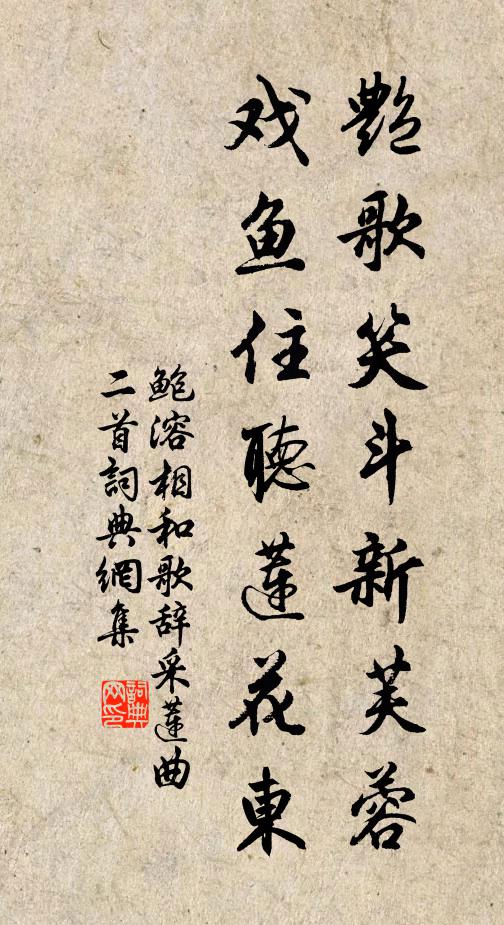 艷歌笑斗新芙蓉
戏鱼住聽蓮花東
鮑溶相和歌辞采蓮曲
二首詞典網集
詞典網印